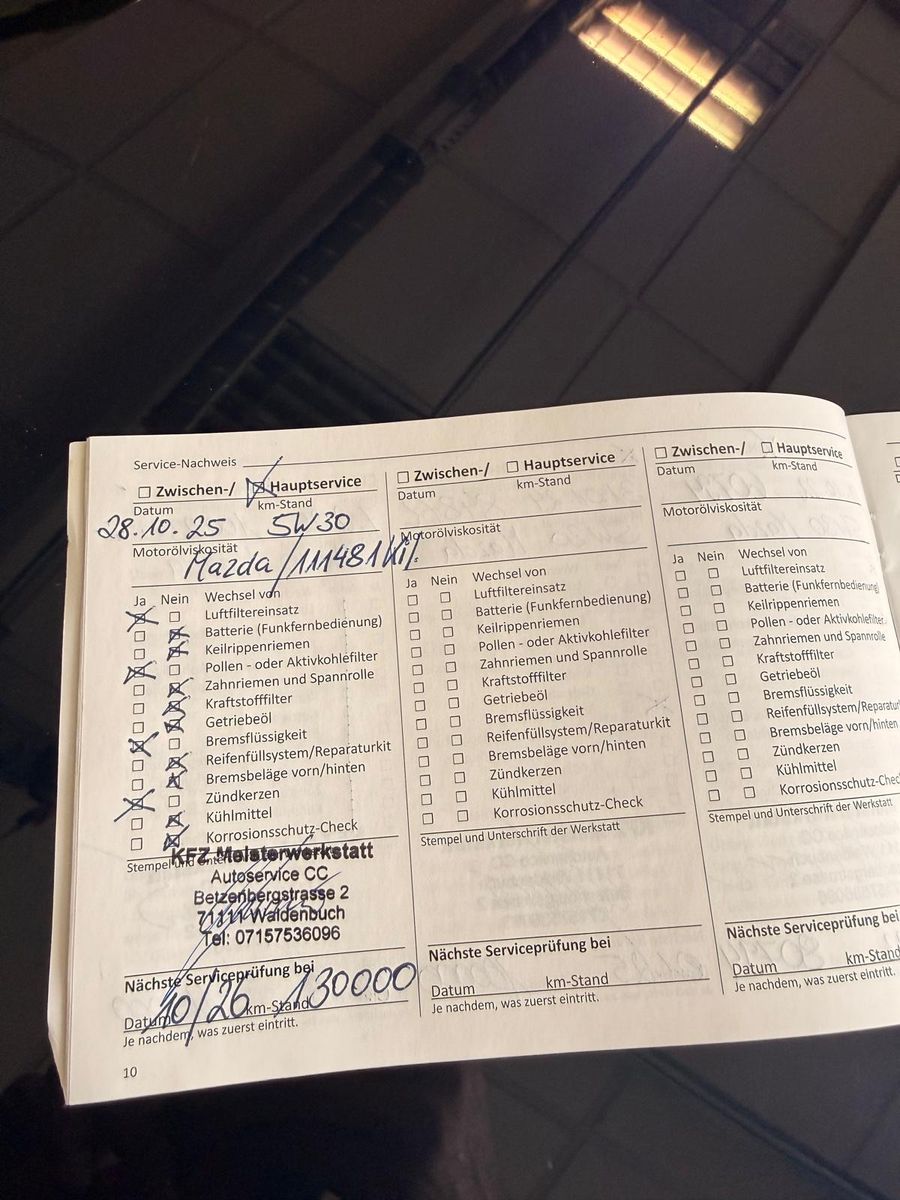 Service-Nachweis
☐ Zwischen-/ ☒ Hauptservice
Datum km-Stand
28.10.25 5W30
Motorölviskosität
Mazda / 111481 Kil.
Ja Nein Wechsel von
☒ ☐ Luftfiltereinsatz
☐ ☒ Batterie (Funkfernbedienung)
☐ ☒ Keilrippenriemen
☒ ☐ Pollen - oder Aktivkohlefilter
☐ ☒ Zahnriemen und Spannrolle
☐ ☒ Kraftstofffilter
☐ ☒ Getriebeöl
☒ ☐ Bremsflüssigkeit
☐ ☒ Reifenfüllsystem/Reparaturkit
☐ ☒ Bremsbeläge vorn/hinten
☒ ☐ Zündkerzen
☐ ☒ Kühlmittel
☐ ☒ Korrosionsschutz-Check
Stempel und
KFZ Meisterwerkstatt
Autoservice CC
Betzenbergstrasse 2
71111 Waldenbuch
Tel: 07157536096
Nächste Serviceprüfung bei
Datum 10/26 km-Stand 130000
Je nachdem, was zuerst eintritt.
10
☐ Zwischen-/ ☐ Hauptservice
Datum km-Stand
Motorölviskosität
Ja Nein Wechsel von
☐ ☐ Luftfiltereinsatz
☐ ☐ Batterie (Funkfernbedienung)
☐ ☐ Keilrippenriemen
☐ ☐ Pollen - oder Aktivkohlefilter
☐ ☐ Zahnriemen und Spannrolle
☐ ☐ Kraftstofffilter
☐ ☐ Getriebeöl
☐ ☐ Bremsflüssigkeit
☐ ☐ Reifenfüllsystem/Reparaturkit
☐ ☐ Bremsbeläge vorn/hinten
☐ ☐ Zündkerzen
☐ ☐ Kühlmittel
☐ ☐ Korrosionsschutz-Check
Stempel und Unterschrift der Werkstatt
Nächste Serviceprüfung bei
Datum km-Stand
Je nachdem, was zuerst eintritt.
☐ Zwischen-/ ☐ Hauptservice
Datum km-Stand
Motorölviskosität
Ja Nein Wechsel von
☐ ☐ Luftfiltereinsatz
☐ ☐ Batterie (Funkfernbedienung)
☐ ☐ Keilrippenriemen
☐ ☐ Pollen - oder Aktivkohlefilter
☐ ☐ Zahnriemen und Spannrolle
☐ ☐ Kraftstofffilter
☐ ☐ Getriebeöl
☐ ☐ Bremsflüssigkeit
☐ ☐ Reifenfüllsystem/Reparaturk
☐ ☐ Bremsbeläge vorn/hinten
☐ ☐ Zündkerzen
☐ ☐ Kühlmittel
☐ ☐ Korrosionsschutz-Chec
Stempel und Unterschrift der Werkstatt
Nächste Serviceprüfung bei
Datum km-Stand
Je nachdem, was zuerst eintritt.